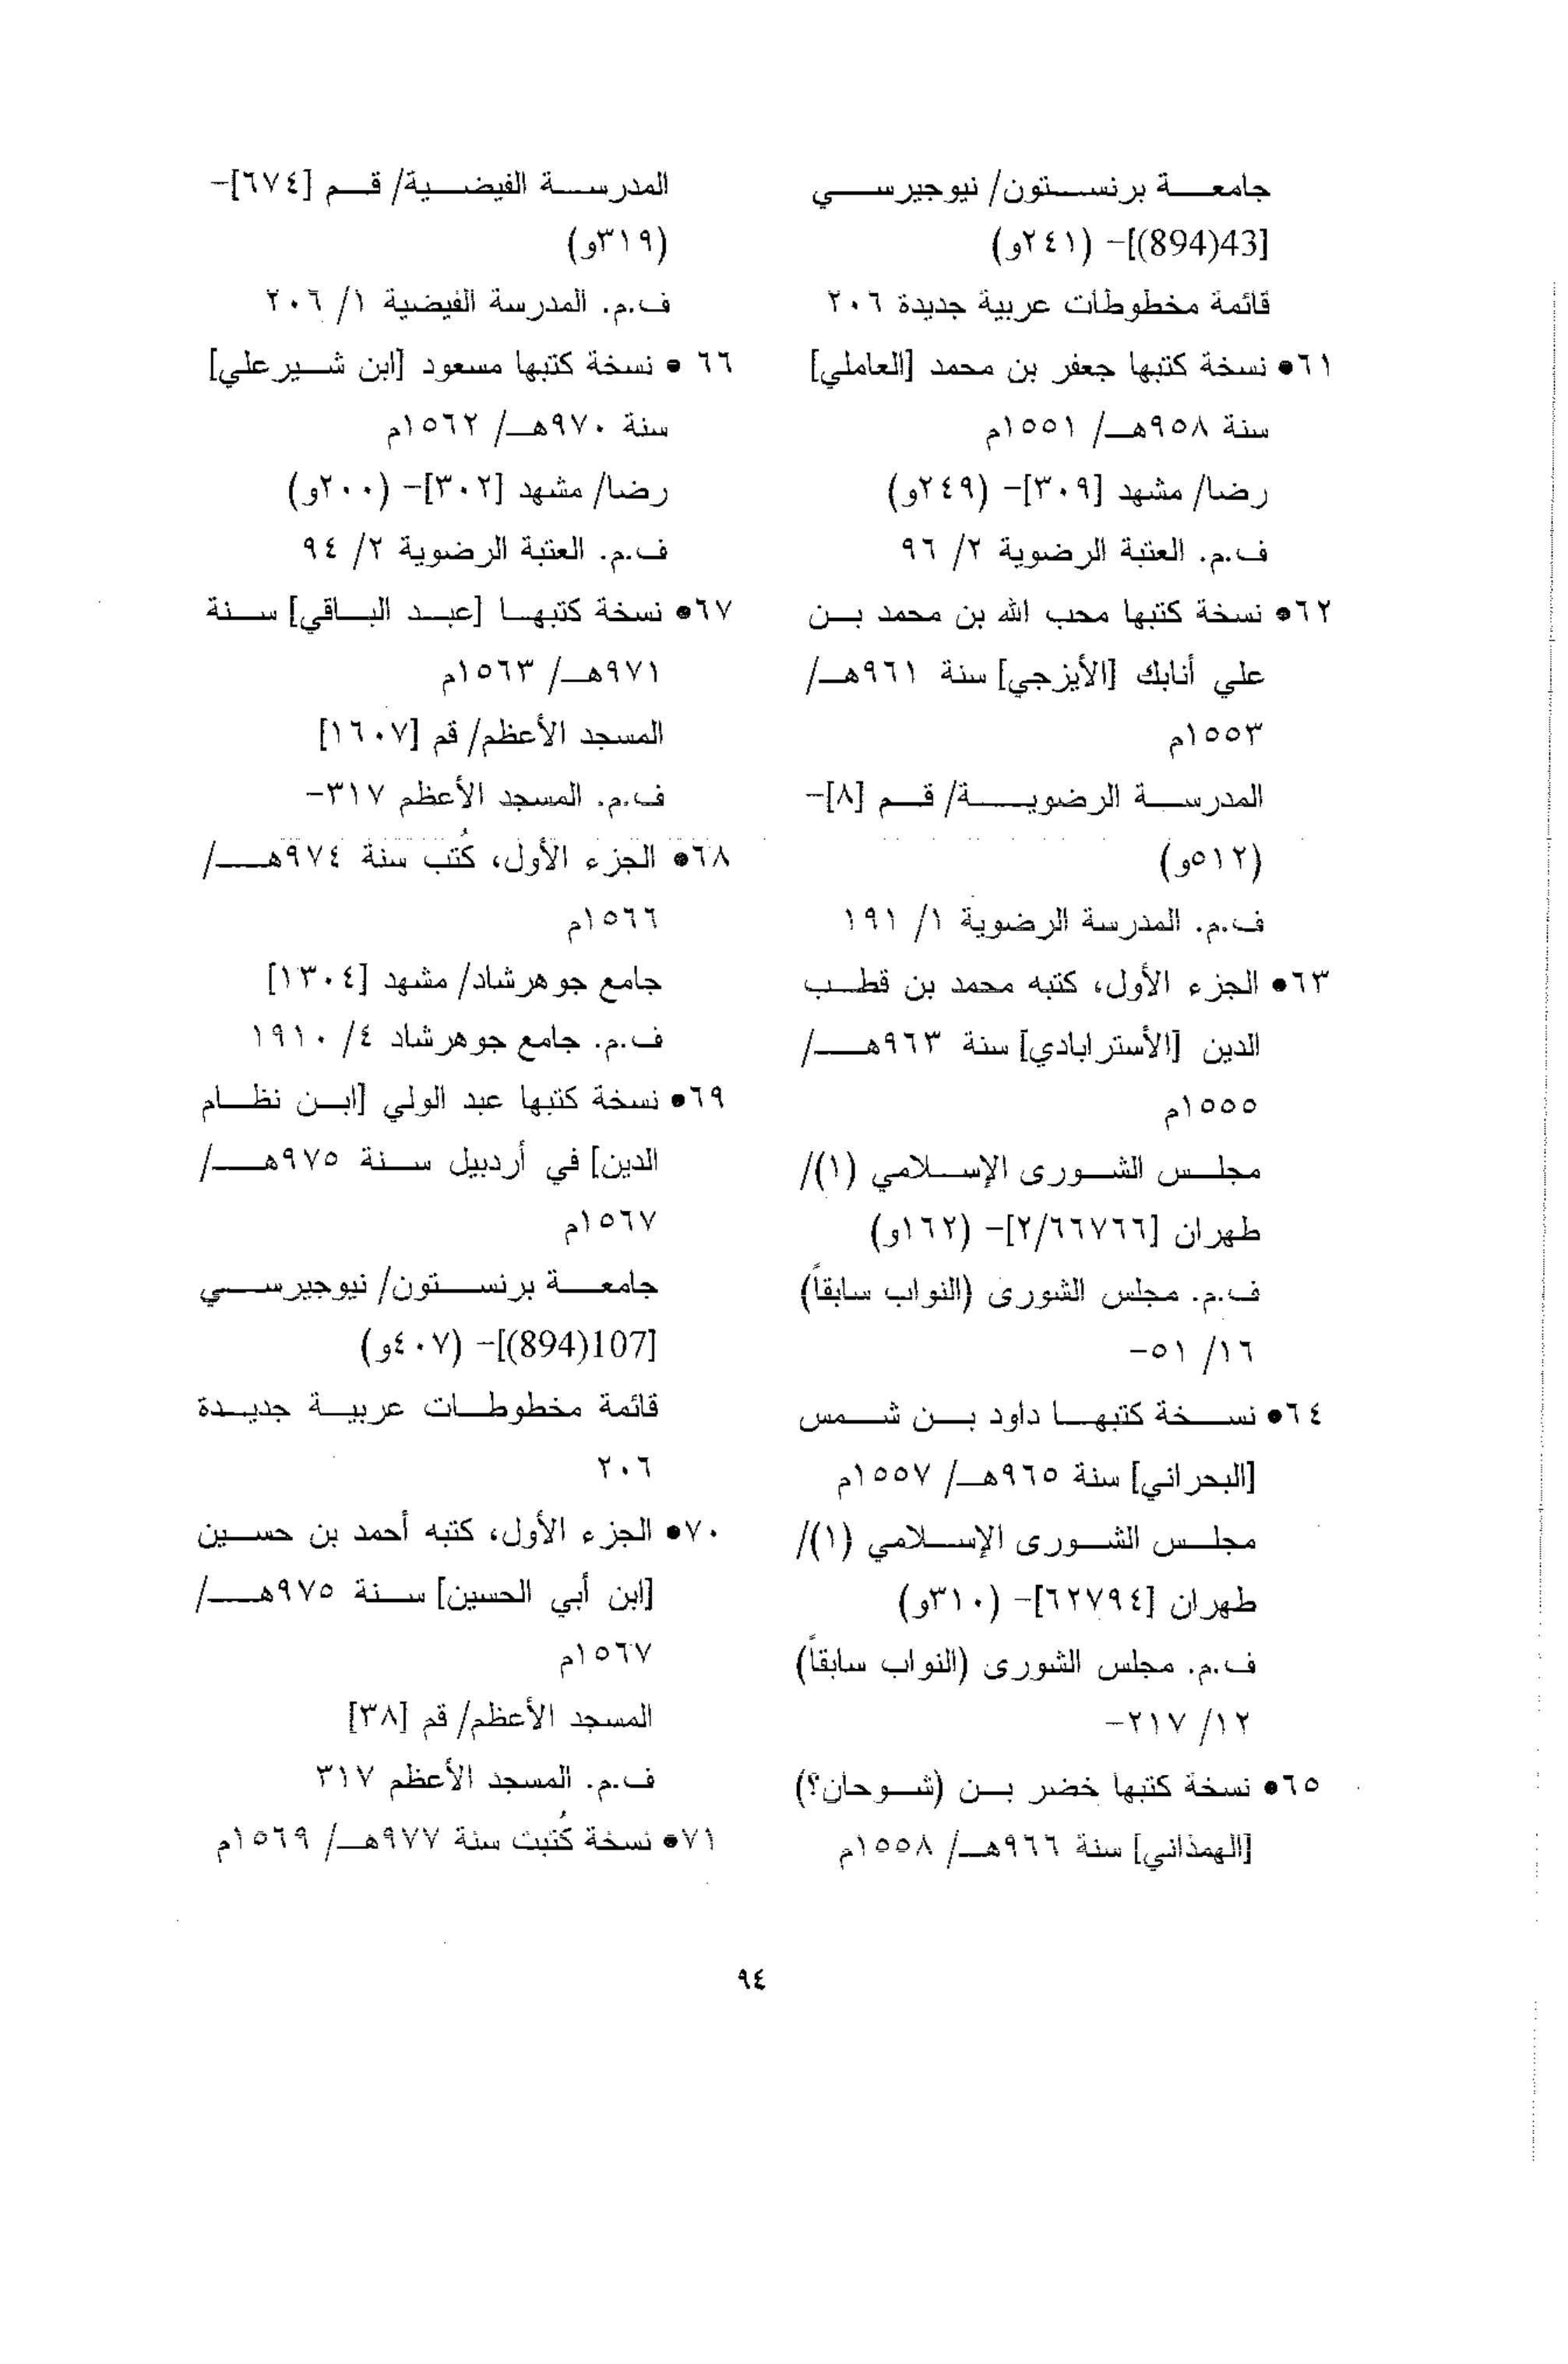 جامعة برنستون/ نيوجيرسي
[43(894)]- (٢٤١و)
قائمة مخطوطات عربية جديدة ٢٠٦
٦١• نسخة كتبها جعفر بن محمد [العاملي]
سنة ٩٥٨هـ/ ١٥٥١م
رضا/ مشهد [٣٠٩]- (٢٤٩و)
ف.م. العتبة الرضوية ٢/ ٩٦
٦٢• نسخة كتبها محب الله بن محمد بن
علي أنابك [الأيزجي] سنة ٩٦١هـ/
١٥٥٣م
المدرسة الرضوية/ قم [٨]-
(٥١٢و)
ف.م. المدرسة الرضوية ١/ ١٩١
٦٣• الجزء الأول، كتبه محمد بن قطب
الدين [الأسترابادي] سنة ٩٦٣هـ/
١٥٥٥م
مجلس الشورى الإسلامي (١)/
طهران [٢/٦٦٧٦٦]- (١٦٢و)
ف.م. مجلس الشورى (النواب سابقاً)
١٦/ ٥١-
٦٤• نسخة كتبها داود بن شمس
[البحراني] سنة ٩٦٥هـ/ ١٥٥٧م
مجلس الشورى الإسلامي (١)/
طهران [٦٢٧٩٤]- (٣١٠و)
ف.م. مجلس الشورى (النواب سابقاً)
١٢/ ٢١٧-
٦٥• نسخة كتبها خضر بن (شوحان؟)
[الهمذاني] سنة ٩٦٦هـ/ ١٥٥٨م
المدرسة الفيضية/ قم [٦٧٤]-
(٣١٩و)
ف.م. المدرسة الفيضية ١/ ٢٠٦
٦٦ • نسخة كتبها مسعود [ابن شيرعلي]
سنة ٩٧٠هـ/ ١٥٦٢م
رضا/ مشهد [٣٠٢]- (٢٠٠و)
ف.م. العتبة الرضوية ٢/ ٩٤
٦٧• نسخة كتبها [عبد الباقي] سنة
٩٧١هـ/ ١٥٦٣م
المسجد الأعظم/ قم [١٦٠٧]
ف.م. المسجد الأعظم ٣١٧-
٦٨• الجزء الأول، كُتب سنة ٩٧٤هـ/
١٥٦٦م
جامع جوهرشاد/ مشهد [١٣٠٤]
ف.م. جامع جوهرشاد ٤/ ١٩١٠
٦٩• نسخة كتبها عبد الولي [ابن نظام
الدين] في أردبيل سنة ٩٧٥هـ/
١٥٦٧م
جامعة برنستون/ نيوجيرسي
[107(894)]- (٤٠٧و)
قائمة مخطوطات عربية جديدة
٢٠٦
٧٠• الجزء الأول، كتبه أحمد بن حسين
[ابن أبي الحسين] سنة ٩٧٥هـ/
١٥٦٧م
المسجد الأعظم/ قم [٣٨]
ف.م. المسجد الأعظم ٣١٧
٧١• نسخة كُتبت سنة ٩٧٧هـ/ ١٥٦٩م
٩٤